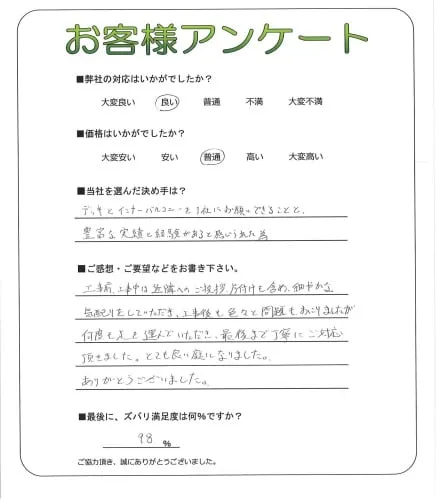 お客様アンケート
■弊社の対応はいかがでしたか?
大変良い 良い 普通 不満 大変不満
■価格はいかがでしたか?
大変安い 安い 普通 高い 大変高い
■当社を選んだ決め手は?
デッキとインナーバルコニーを1社にお願いできることと、
豊富な実績と経験があると思いうれた為
■ご感想・ご要望などをお書き下さい。
工事前、工事中は近隣へのご挨拶、片付けも含め、細やかな
気配りをしていただき、工事後も色々と問題もありましたが
何度も足を運んでいただき、最後まで丁寧にご対応
頂きました。とても良い庭になりました。
ありがとうございました。
■最後に、ズバリ満足度は何%ですか?
98 %
ご協力頂き、誠にありがとうございました。